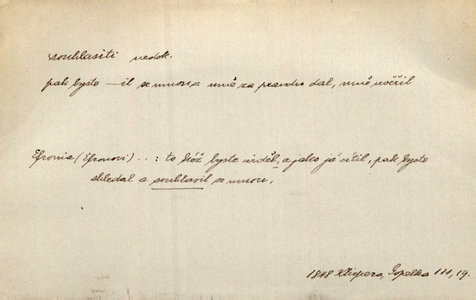 souhlasiti nedok.
pak byste —il se mnou a mně za pravdu dal, mně věřil
(Efronovi) ...: to též byste viděl, a jako já cítil, pak byste
shledal a souhlasil se mnou.
1848 Klicpera, III, 19.